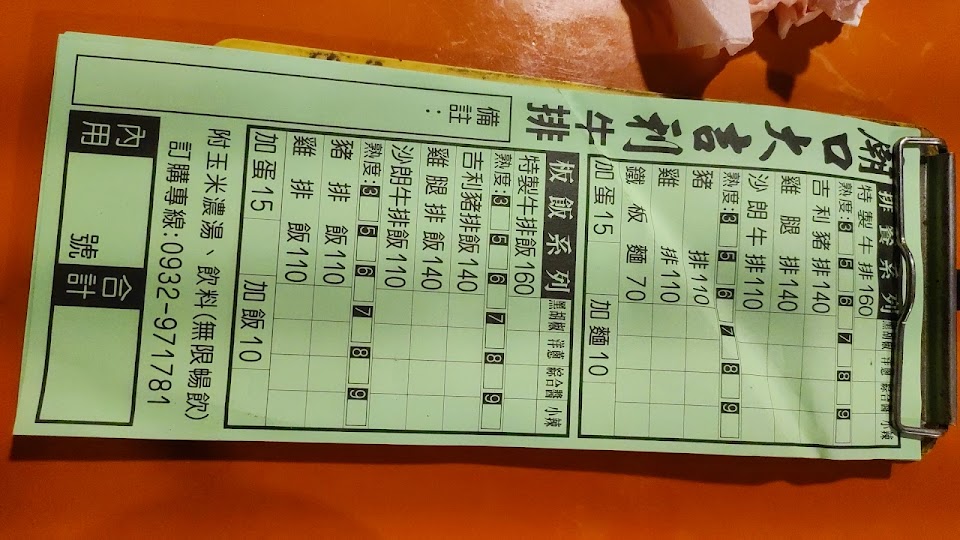 廟口大吉利牛排
排餐系列 黑胡椒 洋蔥 綜合醬 小辣
特製牛排160
熟度:3 5 6 7 8 9
吉利豬排140
雞腿排140
沙朗牛排110
熟度:3 5 6 7 8 9
豬排110
雞排110
鐵板麵70
加蛋15 加麵10
板飯系列 黑胡椒 洋蔥 綜合醬 小辣
特製牛排飯160
熟度:3 5 6 7 8 9
吉利豬排飯140
雞腿排飯140
沙朗牛排飯110
熟度:3 5 6 7 8 9
豬排飯110
雞排飯110
加蛋15 加飯10
備註:
附玉米濃湯、飲料(無限暢飲)
訂購專線:0932-971781
內用 號 合計